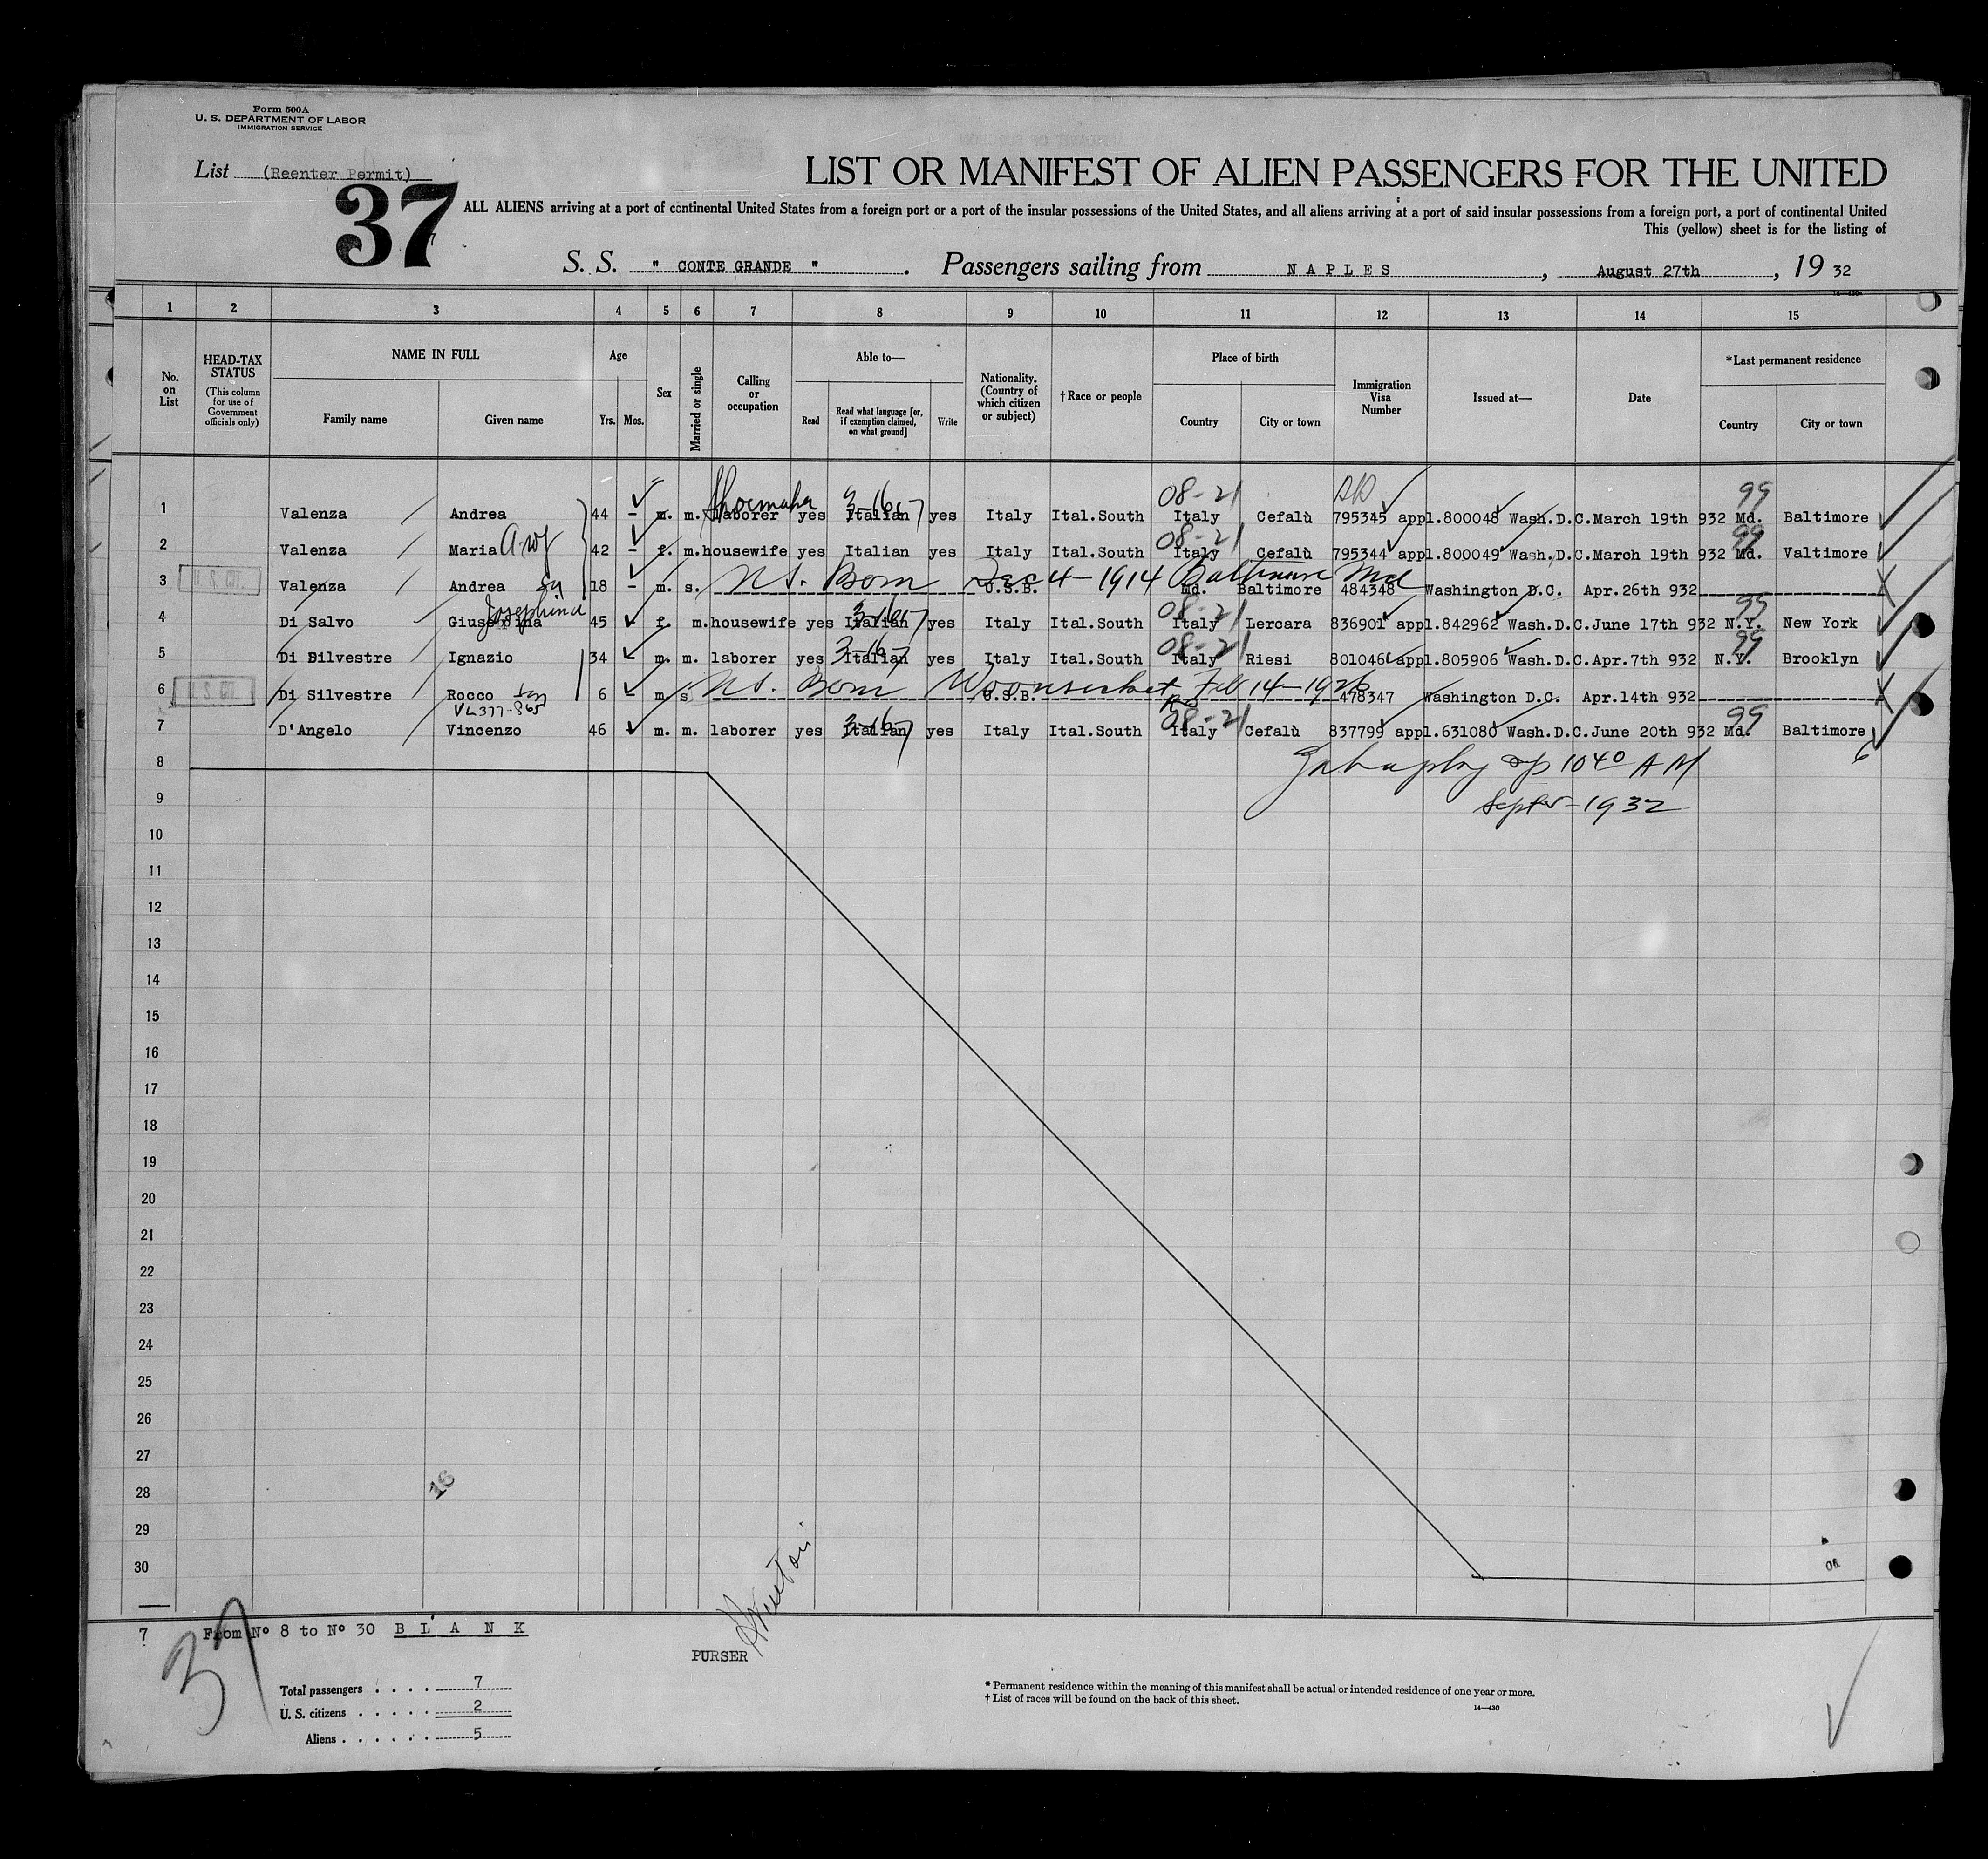 Form 500A
U. S. DEPARTMENT OF LABOR
IMMIGRATION SERVICE
List (Reenter Permit)
37
LIST OR MANIFEST OF ALIEN PASSENGERS FOR THE UNITED
ALL ALIENS arriving at a port of continental United States from a foreign port or a port of the insular possessions of the United States, and all aliens arriving at a port of said insular possessions from a foreign port, a port of continental United
This (yellow) sheet is for the listing of
S. S. " CONTE GRANDE " . Passengers sailing from NAPLES , August 27th , 19 32
1 2 3 4 5 6 7 8 9 10 11 12 13 14 15
No. on List
HEAD-TAX STATUS
(This column for use of Government officials only)
NAME IN FULL
Family name
Given name
Age
Yrs. Mos.
Sex
Married or single
Calling or occupation
Able to—
Read
Read what language [or, if exemption claimed, on what ground]
Write
Nationality. (Country of which citizen or subject)
† Race or people
Place of birth
Country
City or town
Immigration Visa Number
Issued at—
Date
* Last permanent residence
Country
City or town
shoemaker 3-16-7 08-21 99
1 Valenza Andrea 44 – m. m. laborer yes Italian yes Italy Ital.South Italy Cefalù 795345 appl.800048 Wash.D.C. March 19th 932 Md. Baltimore
08-21 99
2 Valenza Maria 42 – f. m. housewife yes Italian yes Italy Ital.South Italy Cefalù 795344 appl.800049 Wash.D.C. March 19th 932 Md. Valtimore
U. S. CIT.
N.S. Born Dec 4-1914 Baltimore Md
3 Valenza Andrea 18 – m. s. U.S.B. Md. Baltimore 484348 Washington D.C. Apr.26th 932
Josephina 3-16-7 08-21 99
4 Di Salvo Giuseppina 45 f. m. housewife yes Italian yes Italy Ital.South Italy Lercara 836901 appl.842962 Wash.D.C. June 17th 932 N.Y. New York
3-16-7 08-21 99
5 Di Silvestre Ignazio 34 – m. m. laborer yes Italian yes Italy Ital.South Italy Riesi 801046 appl.805906 Wash.D.C. Apr.7th 932 N.Y. Brooklyn
U. S. CIT.
N.S. Born Woonsocket Feb 14-1926
6 Di Silvestre Rocco son 6 – m. s U.S.B. 478347 Washington D.C. Apr.14th 932
VL377-865
3-16-7 08-21 99
7 D'Angelo Vincenzo 46 m. m. laborer yes Italian yes Italy Ital.South Italy Cefalù 837799 appl.631080 Wash.D.C. June 20th 932 Md. Baltimore
6
8
10 40 A M
9
1932
10
11
12
13
14
15
16
17
18
19
20
21
22
23
24
25
26
27
28
16
29
30
OR
7 From Nº 8 to Nº 30 BLANK
37
PURSER
Total passengers . . . . 7
U. S. citizens . . . . . 2
Aliens . . . . . . 5
* Permanent residence within the meaning of this manifest shall be actual or intended residence of one year or more.
† List of races will be found on the back of this sheet.
14—430